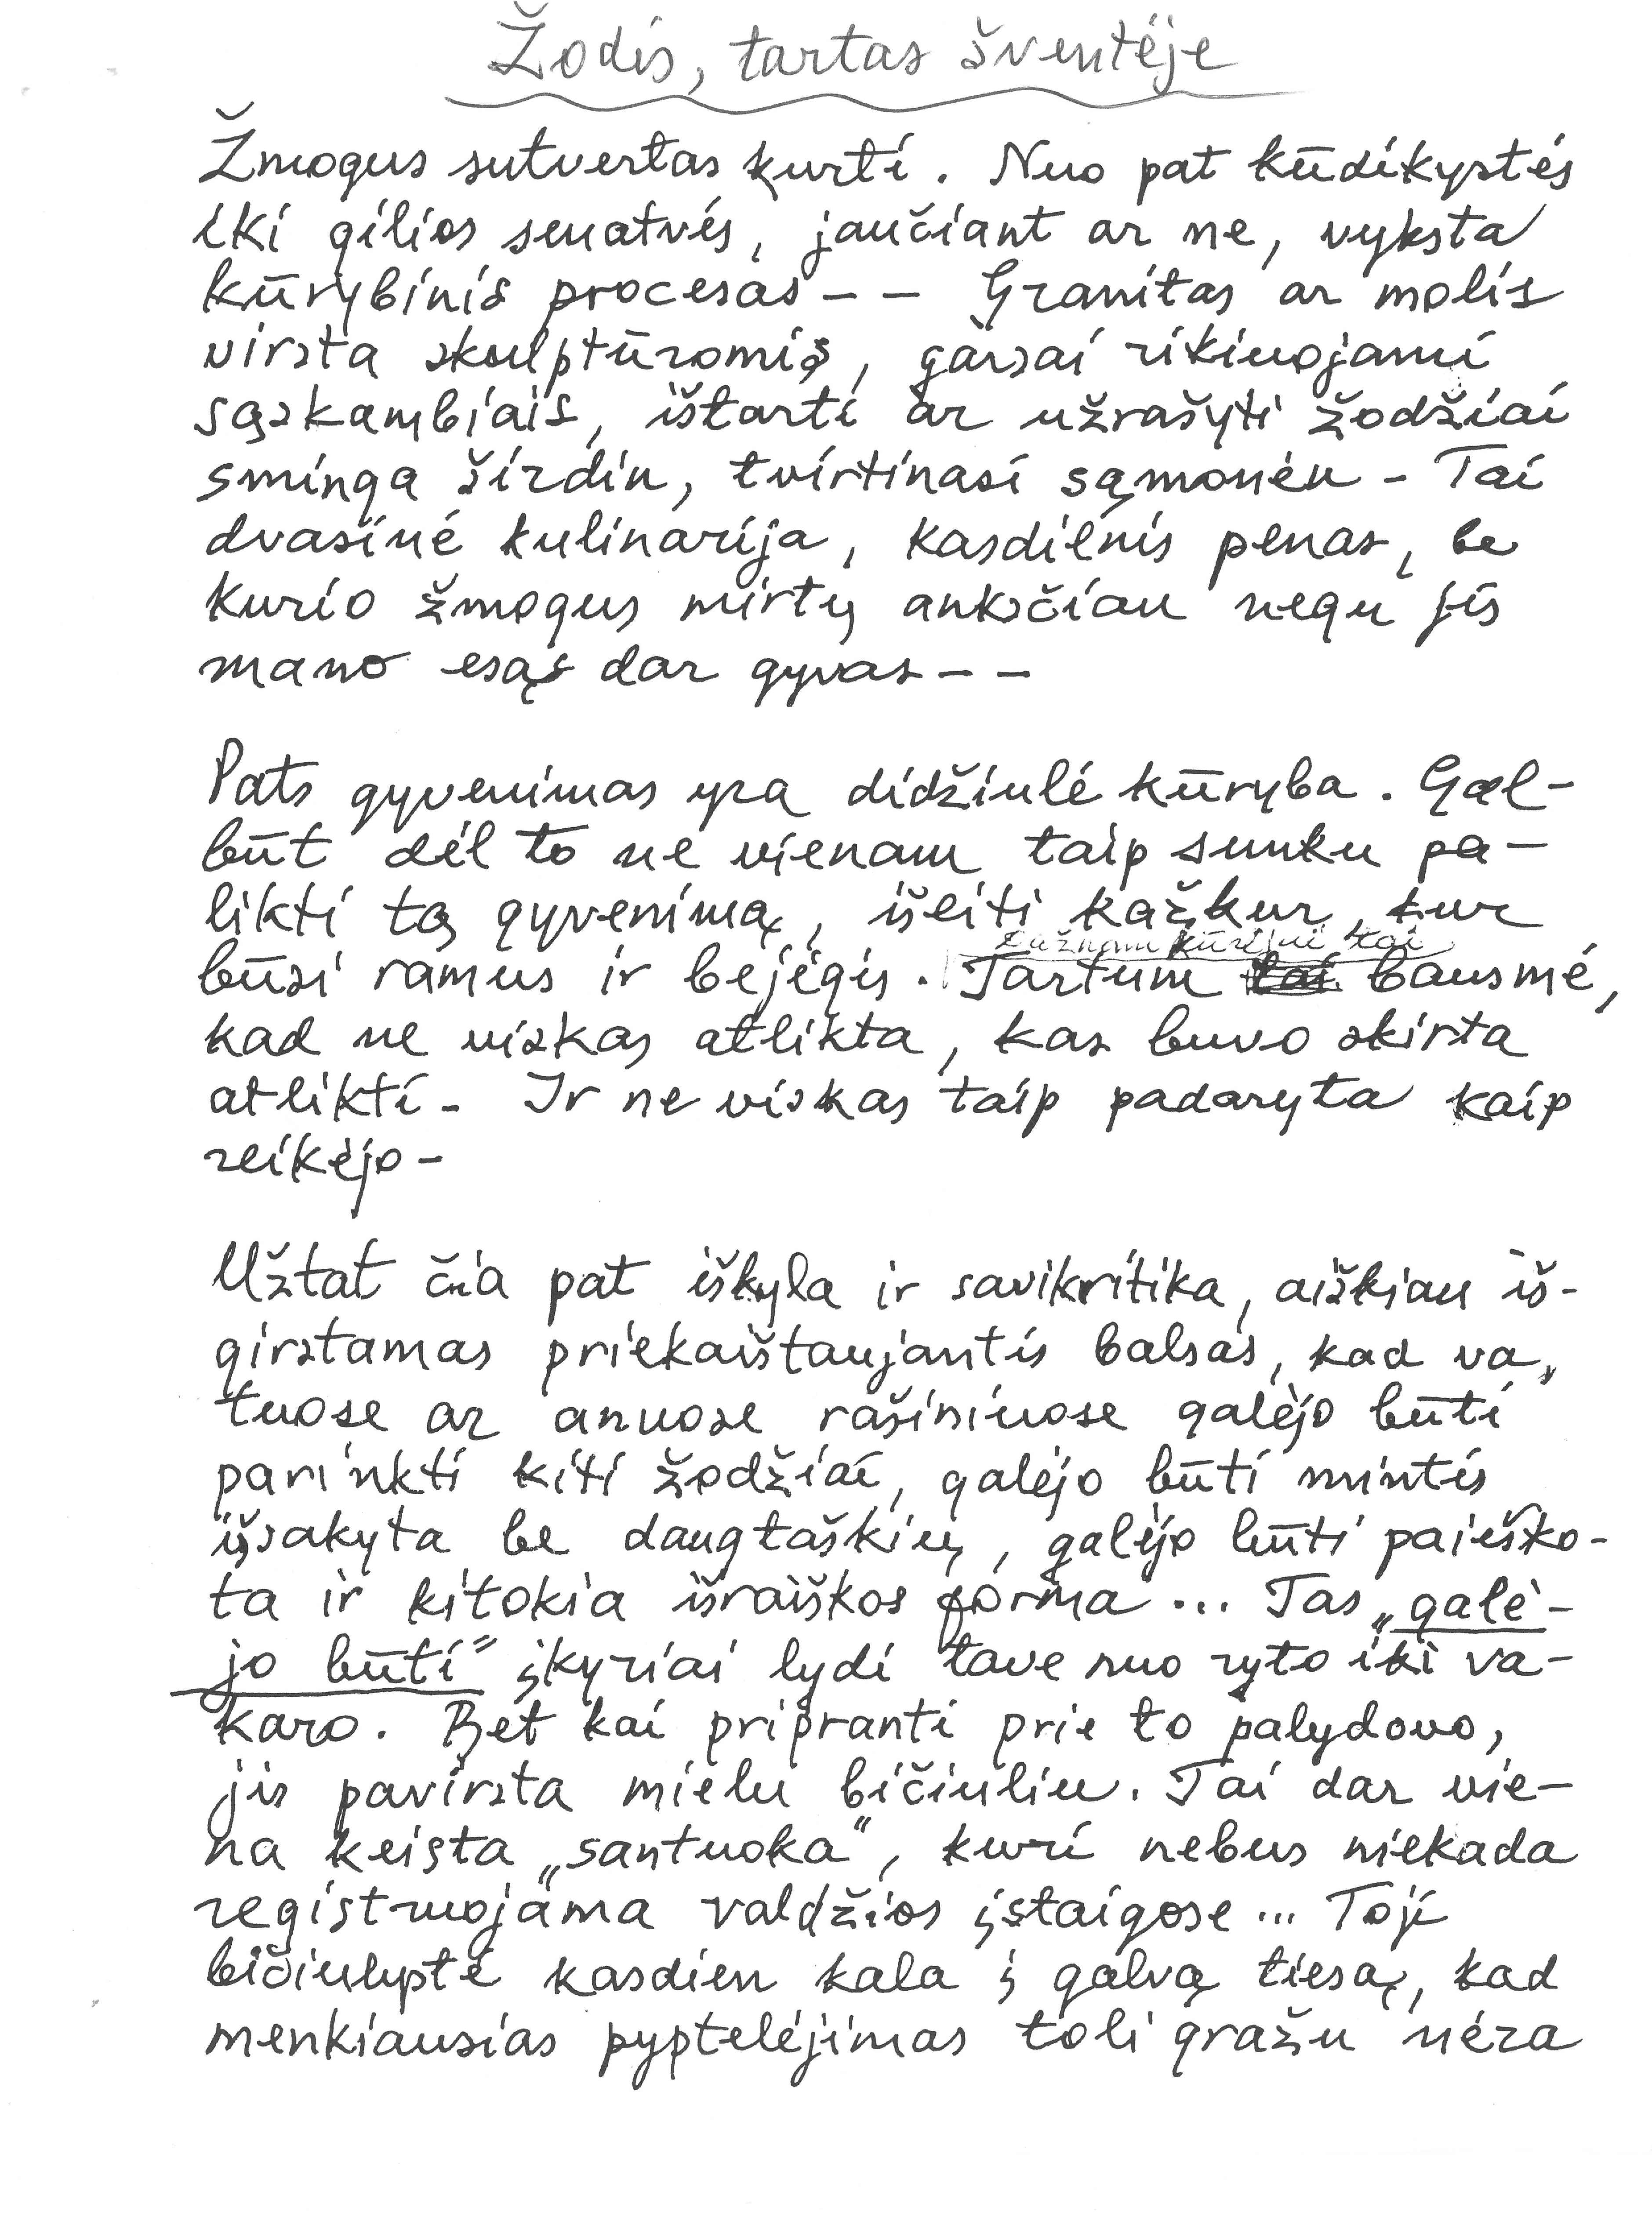 Žodis, tartas šventėje
Žmogus sutvertas kurti. Nuo pat kūdikystės
iki gilios senatvės, jaučiant ar ne, vyksta
kūrybinis procesas - - Granitas ar molis
virsta skulptūromis, garsai rikiuojami
sąskambiais, ištarti ar užrašyti žodžiai
sminga širdin, tvirtinasi sąmonėn - Tai
dvasinė kulinarija, kasdienis penas, be
kurio žmogus mirtų anksčiau negu jis
mano esąs dar gyvas - -
Pats gyvenimas yra didžiulė kūryba. Gal-
būt dėl to ne vienam taip sunku pa-
likti tą gyvenimą, išeiti kažkur, kur
dažnam kūrėjui tai
būsi ramus ir bejėgis. Tartum tai bausmė,
kad ne viskas atlikta, kas buvo skirta
atlikti - Ir ne viskas taip padaryta kaip
reikėjo -
Užtat čia pat iškyla ir savikritika, aiškiau iš-
girstamas priekaištaujantis balsas, kad va,
tuose ar anuose rašiniuose galėjo būti
parinkti kiti žodžiai, galėjo būti mintis
išsakyta be daugtaškių, galėjo būti paieško-
ta ir kitokia išraiškos forma ... Tas „galė-
jo būti" įkyriai lydi tave nuo ryto iki va-
karo. Bet kai pripranti prie to palydovo,
jis pavirsta mielu bičiuliu. Tai dar vie-
na keista „santuoka", kuri nebus niekada
registruojama valdžios įstaigose ... Toji
bičiulystė kasdien kala į galvą tiesą, kad
menkiausias pyptelėjimas toli gražu nėra